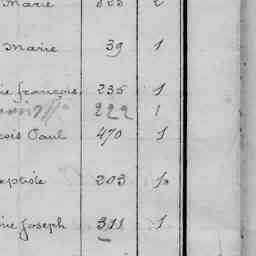 Marie 325 2
Marie 39 1
ie françois 236 1
222 1
çois Paul 470 1
aptiste 203 1
rie Joseph 311 1